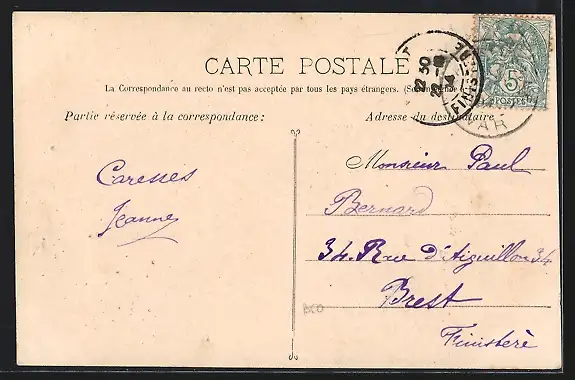 CARTE POSTALE
La Correspondance au recto n'est pas acceptée par tous les pays étrangers.
Partie réservée à la correspondance :
Adresse du destinataire
Caresses
Jeanne
Monsieur Paul
Bernard
34. Rue d'Aiguillon 34
Brest
Finistère
12 50
FINISTERE
5
POSTES
VAR